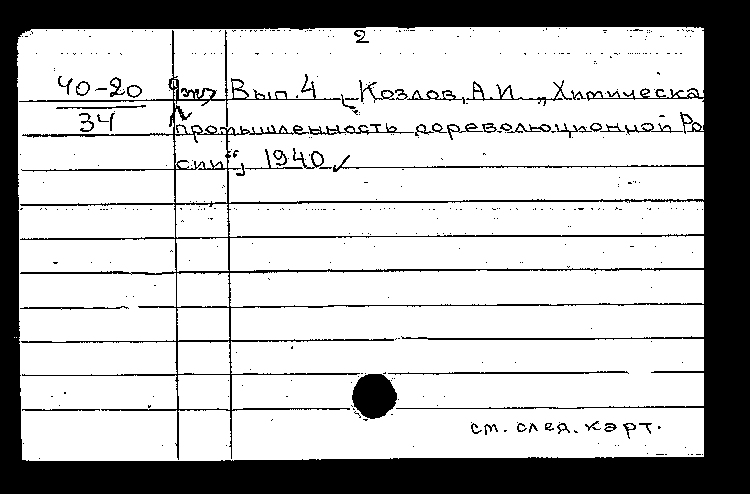 2
40-20 Вып.4 Козлов, А.И. „Химическа
34 промышленность дореволюционной Ро
сии", 1940 ✓
см. след. карт.